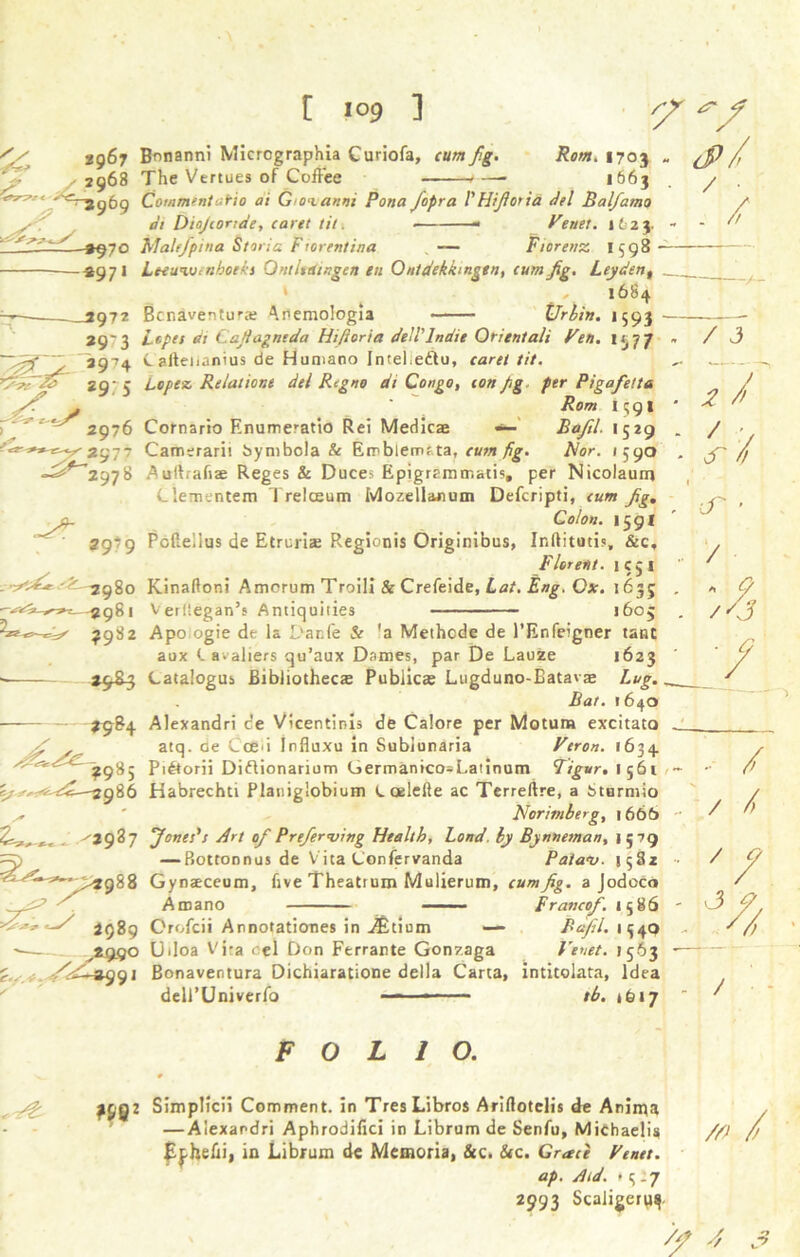 [ 109 ]
2967 Bonanni Micrographia Curiosa, cum fig. Rom. 1703
2968 The Vertues of Coffee —— 1663
2969 Commentario di Giovanni Pona sopra l'Historia del Balsamo
di Dioscoride, caret tit. —— Venet. 1623.
2970 Malespina Storia Fiorentina — Fiorenz 1598
2971 Leeuwenhoeks Onthdingen en Ontdekkingen, cum fig. Leyden,
1684
2972 Bonaventuræ Anemologia —— Urbin. 1593
2973 Lopes di Castagneda Historia dell'Indie Orientali Ven. 1577
2974 Castellanius de Humano Intellectu, caret tit.
2975 Lopez Relatione del Regno di Congo, con fig. per Pigafetta
Rom 1591
2976 Cornario Enumeratio Rei Medicæ — Basil. 1529
2977 Camerarii Symbola & Emblemata, cum fig. Nor. 1590
2978 Austrasiæ Reges & Duces Epigrammatis, per Nicolaum
Clementem Trelœum Mozellanum Descripti, cum fig.
Colon. 1591
2979 Postellus de Etruriæ Regionis Originibus, Institutis, &c.
Florent. 1551
2980 Kinastoni Amorum Troili & Creseide, Lat. Eng. Ox. 1635
2981 Verstegan's Antiquities —— 1605
2982 Apologie de la Danse & la Methode de l'Enseigner tant
aux Cavaliers qu'aux Dames, par De Lauze 1623
2983 Catalogus Bibliothecæ Publicæ Lugduno-Batavæ Lug.
Bat. 1640
2984 Alexandri de Vicentinis de Calore per Motum excitato
atq. de Cœli Influxu in Sublunaria Veron. 1634
2985 Pictorii Dictionarium Germanico-Latinum Tigur. 1561
2986 Habrechti Planiglobium Cœleste ac Terrestre, a Sturmio
Norimberg, 1666
2987 Jones's Art of Preserving Health, Lond. by Bynneman, 1579
— Bottonnus de Vita Conservanda Patav. 1582
2988 Gynæceum, sive Theatrum Mulierum, cum fig. a Jodoco
Amano —— —— Francof. 1586
2989 Oroscii Annotationes in Ætium — Basil. 1540
2990 Ulloa Vita del Don Ferrante Gonzaga Venet. 1563
2991 Bonaventura Dichiaratione della Carta, intitolata, Idea
dell'Universo —— ib. 1617
FOLIO.
2992 Simplicii Comment. in Tres Libros Aristotelis de Anima
—Alexandri Aphrodisici in Librum de Sensu, Michaelis
Ephesii, in Librum de Memoria, &c. &c. Græcè Venet.
ap. Ald. 1527
2993 Scaligerus